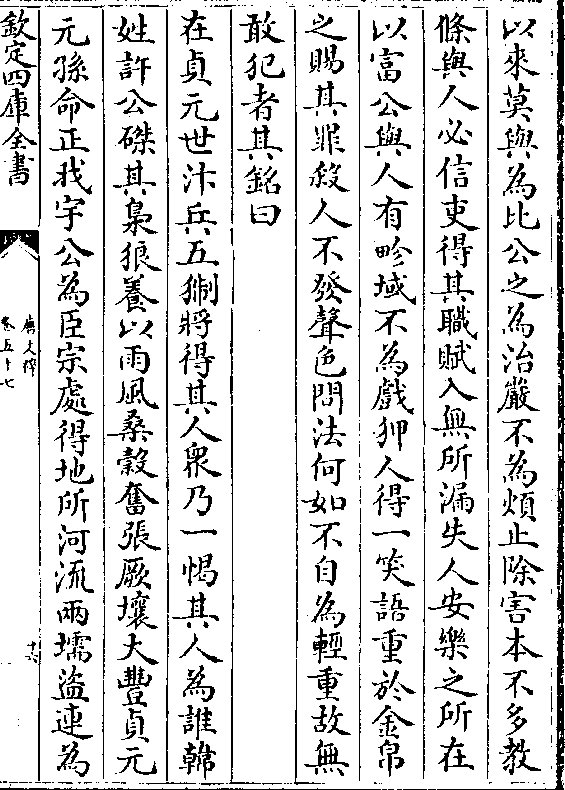 以來莫與為比公之為治嚴不為煩止除害本不多教
條與人必信吏得其職賦入無所漏失人安樂之所在
以富公與人有畛域不為戲狎人得一笑語重於金帛
之賜其罪殺人不發聲色問法何如不自為輕重故無
敢犯者其銘曰
在貞元世汴兵五猘將得其人衆乃一愒其人為誰韓
姓許公磔其梟狼養以雨風桑榖奮張厥壤大豐貞元
元孫命正我宇公為臣宗處得地所河流兩壖盜連為
欽定四庫全書
唐文粹
卷五十七
十六